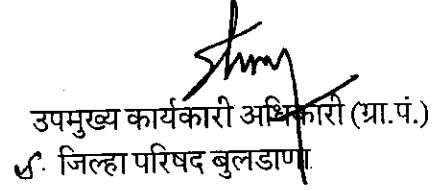 उपमुख्य कार्यकारी अधिकारी (ग्रा.पं.)
जिल्हा परिषद बुलडाणा